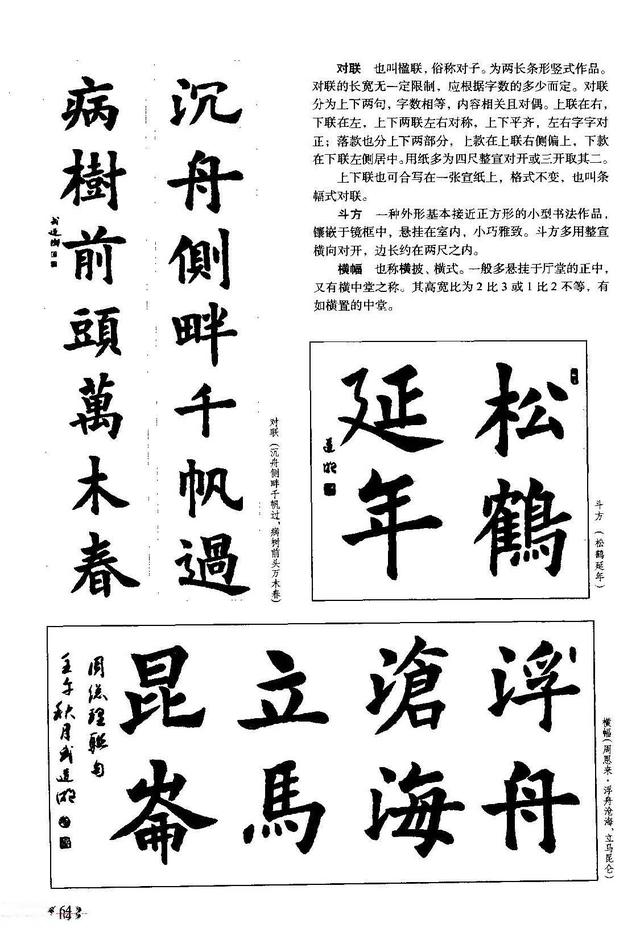 对联　也叫楹联，俗称对子。为两长条形竖式作品。
对联的长宽无一定限制，应根据字数的多少而定。对联
分为上下两句，字数相等，内容相关且对偶。上联在右，
下联在左，上下两联左右对称，上下平齐，左右字字对
正；落款也分上下两部分，上款在上联右侧偏上，下款
在下联左侧居中。用纸多为四尺整宣对开或三开取其二。
上下联也可合写在一张宣纸上，格式不变，也叫条
幅式对联。
斗方　一种外形基本接近正方形的小型书法作品，
镶嵌于镜框中，悬挂在室内，小巧雅致。斗方多用整宣
横向对开，边长约在两尺之内。
横幅　也称横披、横式。一般多悬挂于厅堂的正中，
又有横中堂之称。其高宽比为2比3或1比2不等，有
如横置的中堂。
沉舟側畔千帆過
病樹前頭萬木春
对联（沉舟侧畔千帆过，病树前头万木春）
松鶴
延年
斗方（松鹤延年）
浮舟
滄海
立馬
昆崙
周總理聯句
壬午秋月
横幅（周恩来·浮舟沧海，立马昆仑）
64